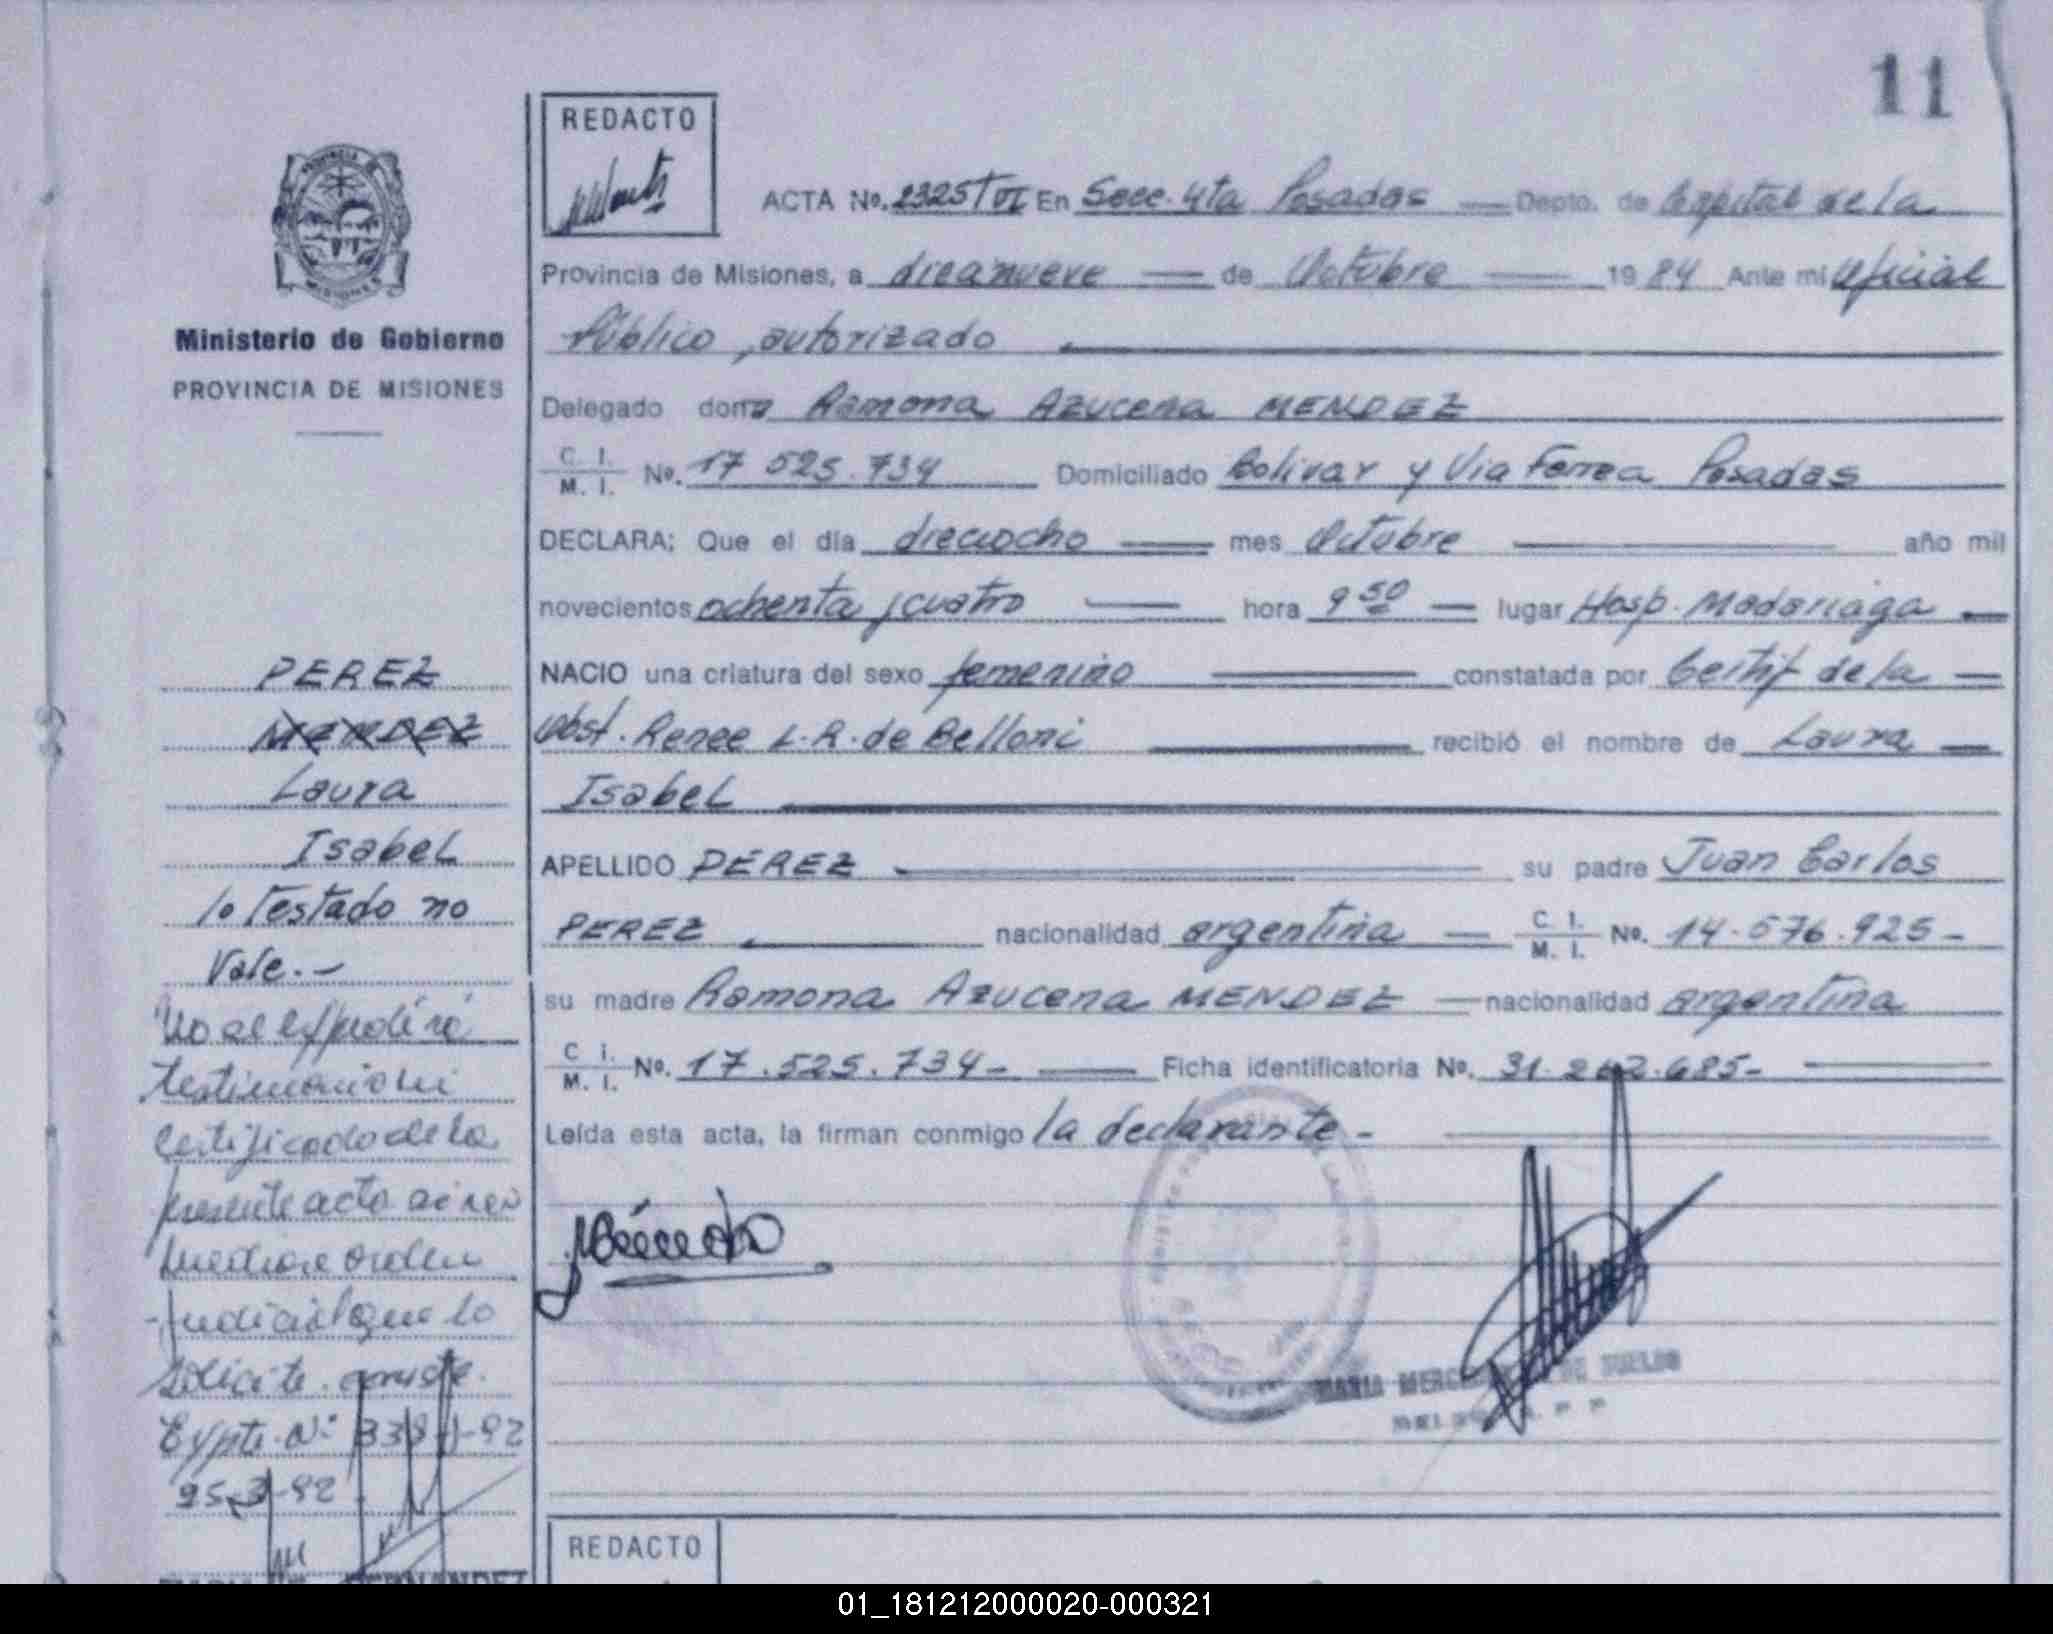 11
REDACTO
ACTA No. 2325/TVI En Secc. 4ta Posadas — Depto. de Capital de la
Provincia de Misiones, a diecinueve — de Octubre — 1984 Ante mi oficial
Público, autorizado
Delegado doña Ramona Azucena MENDEZ
C. I. / M. I. No. 17 525.734 Domiciliado Bolivar y Via Ferrea Posadas
DECLARA; Que el día dieciocho — mes Octubre — año mil
novecientos ochenta y cuatro — hora 9 50 — lugar Hosp. Madariaga —
NACIO una criatura del sexo femenino — constatada por Certif de la —
Obst. Renee L. R. de Belloni — recibió el nombre de Laura —
Isabel
APELLIDO PEREZ — su padre Juan Carlos
PEREZ — nacionalidad argentina — C. I. / M. I. No. 14.576.925 -
su madre Ramona Azucena MENDEZ — nacionalidad argentina
C. I. / M. I. No. 17.525.734 - — Ficha identificatoria No. 31.262.685 -
Leída esta acta, la firman conmigo la declarante -
MARIA DE
REDACTO
Ministerio de Gobierno
PROVINCIA DE MISIONES
PEREZ
MENDEZ
Laura
Isabel
lo Testado no
Vale.-
No se expedirá
testimonio ni
Certificado de la
presente acta si no
mediare orden
Judicial que lo
solicite.
Expte. Nº -92
25-3-92
FERNANDEZ
01_181212000020-000321